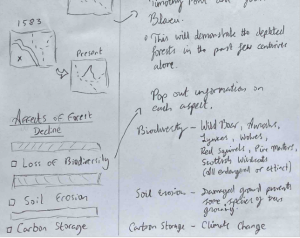 1583
Present
Affects of Forest
Decline
Loss of Biodiversity
Soil Erosion
Carbon Storage
Blaeu.
This will demonstrate the depleted
forests in the past few centuries
alone.
Pop out information on
each aspect.
Biodiversity - Wild Boar,
Lynxes, Wolves,
Red Squirrels, Pine Martens,
Scottish Wildcats
(all endangered or extinct)
Soil Erosion - Damaged ground prevents
some species of
growing
Carbon Storage - Climate Change